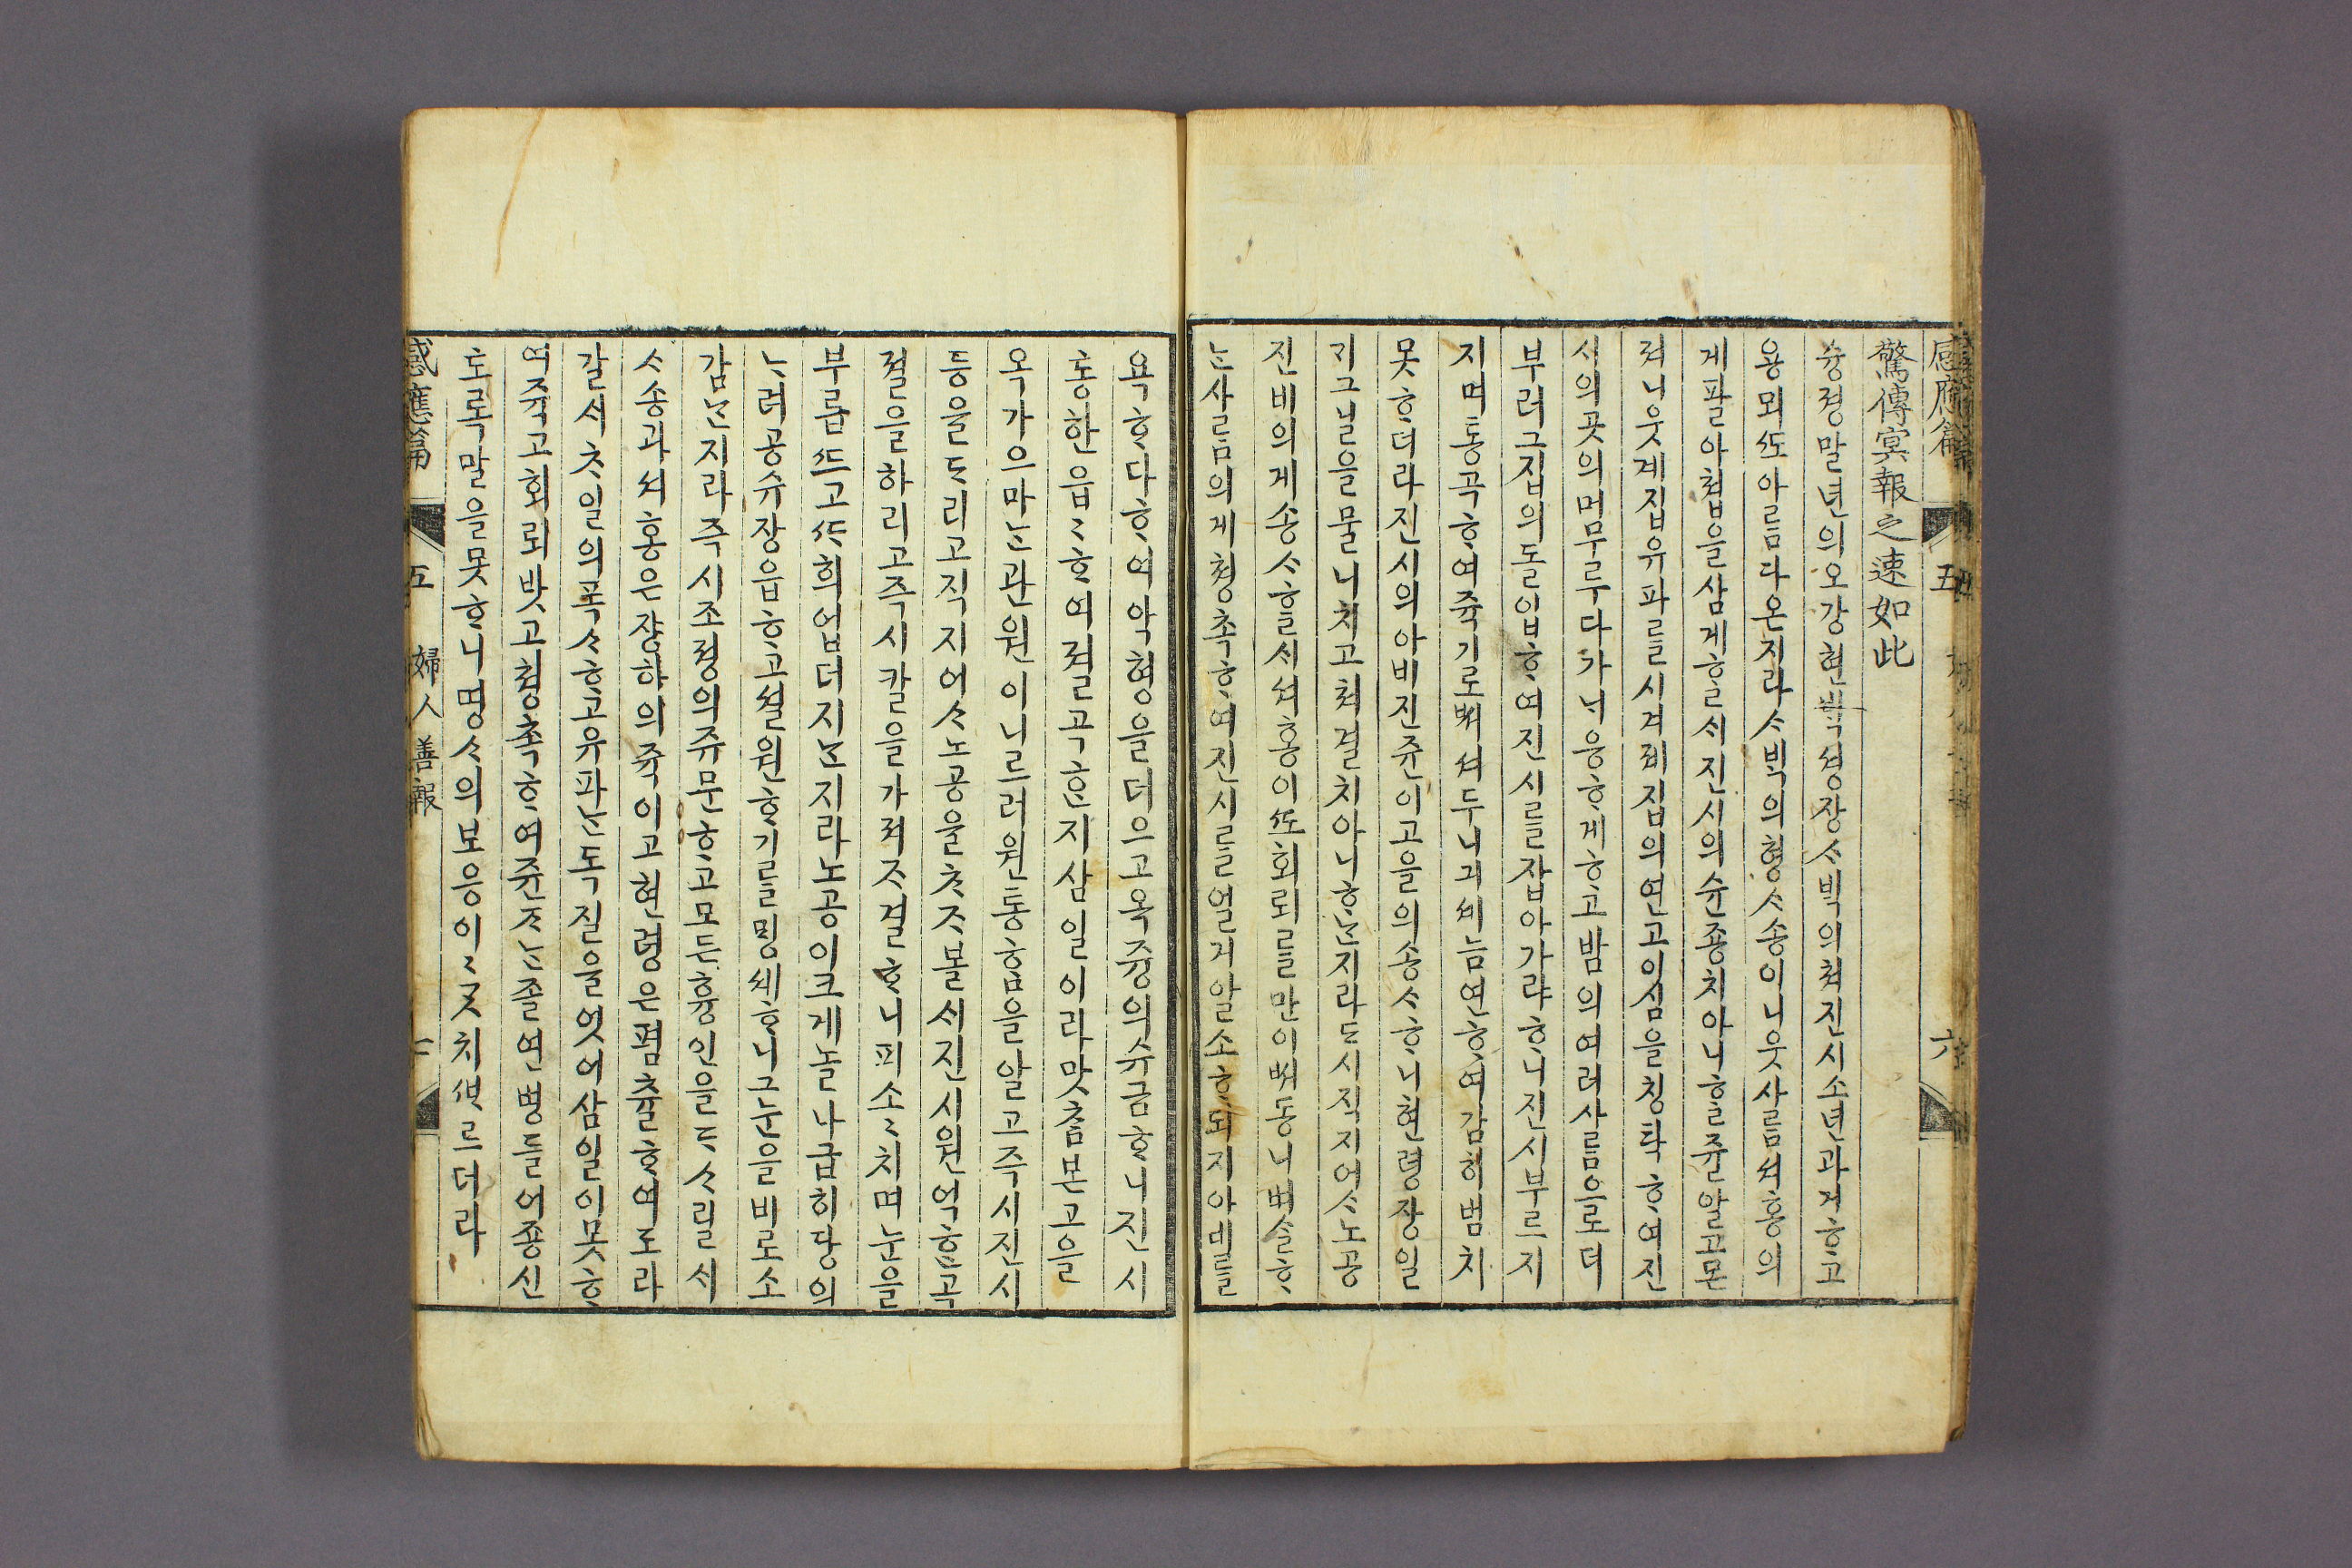 感應篇 五 六
驚傳冥報之速如此
슝졍말년의오강현ᄇᆡᆨ셩쟝ᄉᆞᄇᆡᆨ의쳐진시소년과거ᄒᆞ고
용뫼ᄯᅩ아ᄅᆞᆷ다온지라ᄉᆞᄇᆡᆨ의형ᄉᆞ숑이니웃사ᄅᆞᆷ셔홍의
게팔아쳡을삼게ᄒᆞᆯᄉᆡ진시의슌죵치아니ᄒᆞᆯ쥴알고몬
져니웃계집유파ᄅᆞᆯ시겨졔집의연고이심을칭탁ᄒᆞ여진
시의곳의머무루다가ᄂᆡ응ᄒᆞ게ᄒᆞ고밤의여러사ᄅᆞᆷ으로더
부러그집의돌입ᄒᆞ여진시ᄅᆞᆯ잡아가랴ᄒᆞ니진시부르지
지며통곡ᄒᆞ여쥭기로ᄡᅥ셔두니긔ᄇᆡ늠연ᄒᆞ여감히범치
못ᄒᆞ더라진시의아비진쥰이고을의숑ᄉᆞᄒᆞ니현령쟝일
지그날을물니치고쳐결치아니ᄒᆞᄂᆞᆫ지라ᄃᆞ시직지어ᄉᆞ노공
진비의게숑ᄉᆞᄒᆞᆯᄉᆡ셔홍이ᄯᅩ회뢰ᄅᆞᆯ만이ᄡᅥ동니벼슬ᄒᆞ
ᄂᆞᆫ사ᄅᆞᆷ의게쳥촉ᄒᆞ여진시ᄅᆞᆯ얼게알소ᄒᆞ되지아비ᄅᆞᆯ
욕ᄒᆞ다ᄒᆞ여악형을더으고옥즁의슈금ᄒᆞ니진시
통한읍〻ᄒᆞ여졀곡ᄒᆞᆫ지삼일이라맛ᄎᆞᆷ본고을
옥가음아ᄂᆞᆫ관원이니르러원통ᄒᆞᆷ을알고즉시진시
등을ᄃᆞ리고직지어ᄉᆞ노공을ᄎᆞᄌᆞ볼ᄉᆡ진시원억ᄒᆞᆫ곡
졀을하리고즉시칼을가져ᄌᆞ결ᄒᆞ니피소ᄉᆞ치며눈을
부릅ᄯᅳ고ᄯᅳ희업더지ᄂᆞᆫ지라노공이크게놀나급히당의
ᄂᆞ려공슈쟝읍ᄒᆞ고셜원ᄒᆞ기ᄅᆞᆯᄆᆡᆼ셰ᄒᆞ니그눈을비로소
감ᄂᆞᆫ지라즉시조졍의쥬문ᄒᆞ고모든흉인을ᄃᆞᄉᆞ릴ᄉᆡ
ᄉᆞ숑과셔홍은쟝하의쥭이고현령은폄츌ᄒᆞ여도라
갈ᄉᆡᄎᆞ일의폭ᄉᆞᄒᆞ고유파ᄂᆞᆫ독질을엇어삼일이못ᄒᆞ
여쥭고회뢰밧고쳥촉ᄒᆞ여쥰ᄌᆞᄂᆞᆫ졸연병들어죵신
도록말을못ᄒᆞ니명ᄉᆞ의보응이〻ᄀᆞᆺ치ᄲᆞ르더라
感應篇 五 婦人善報